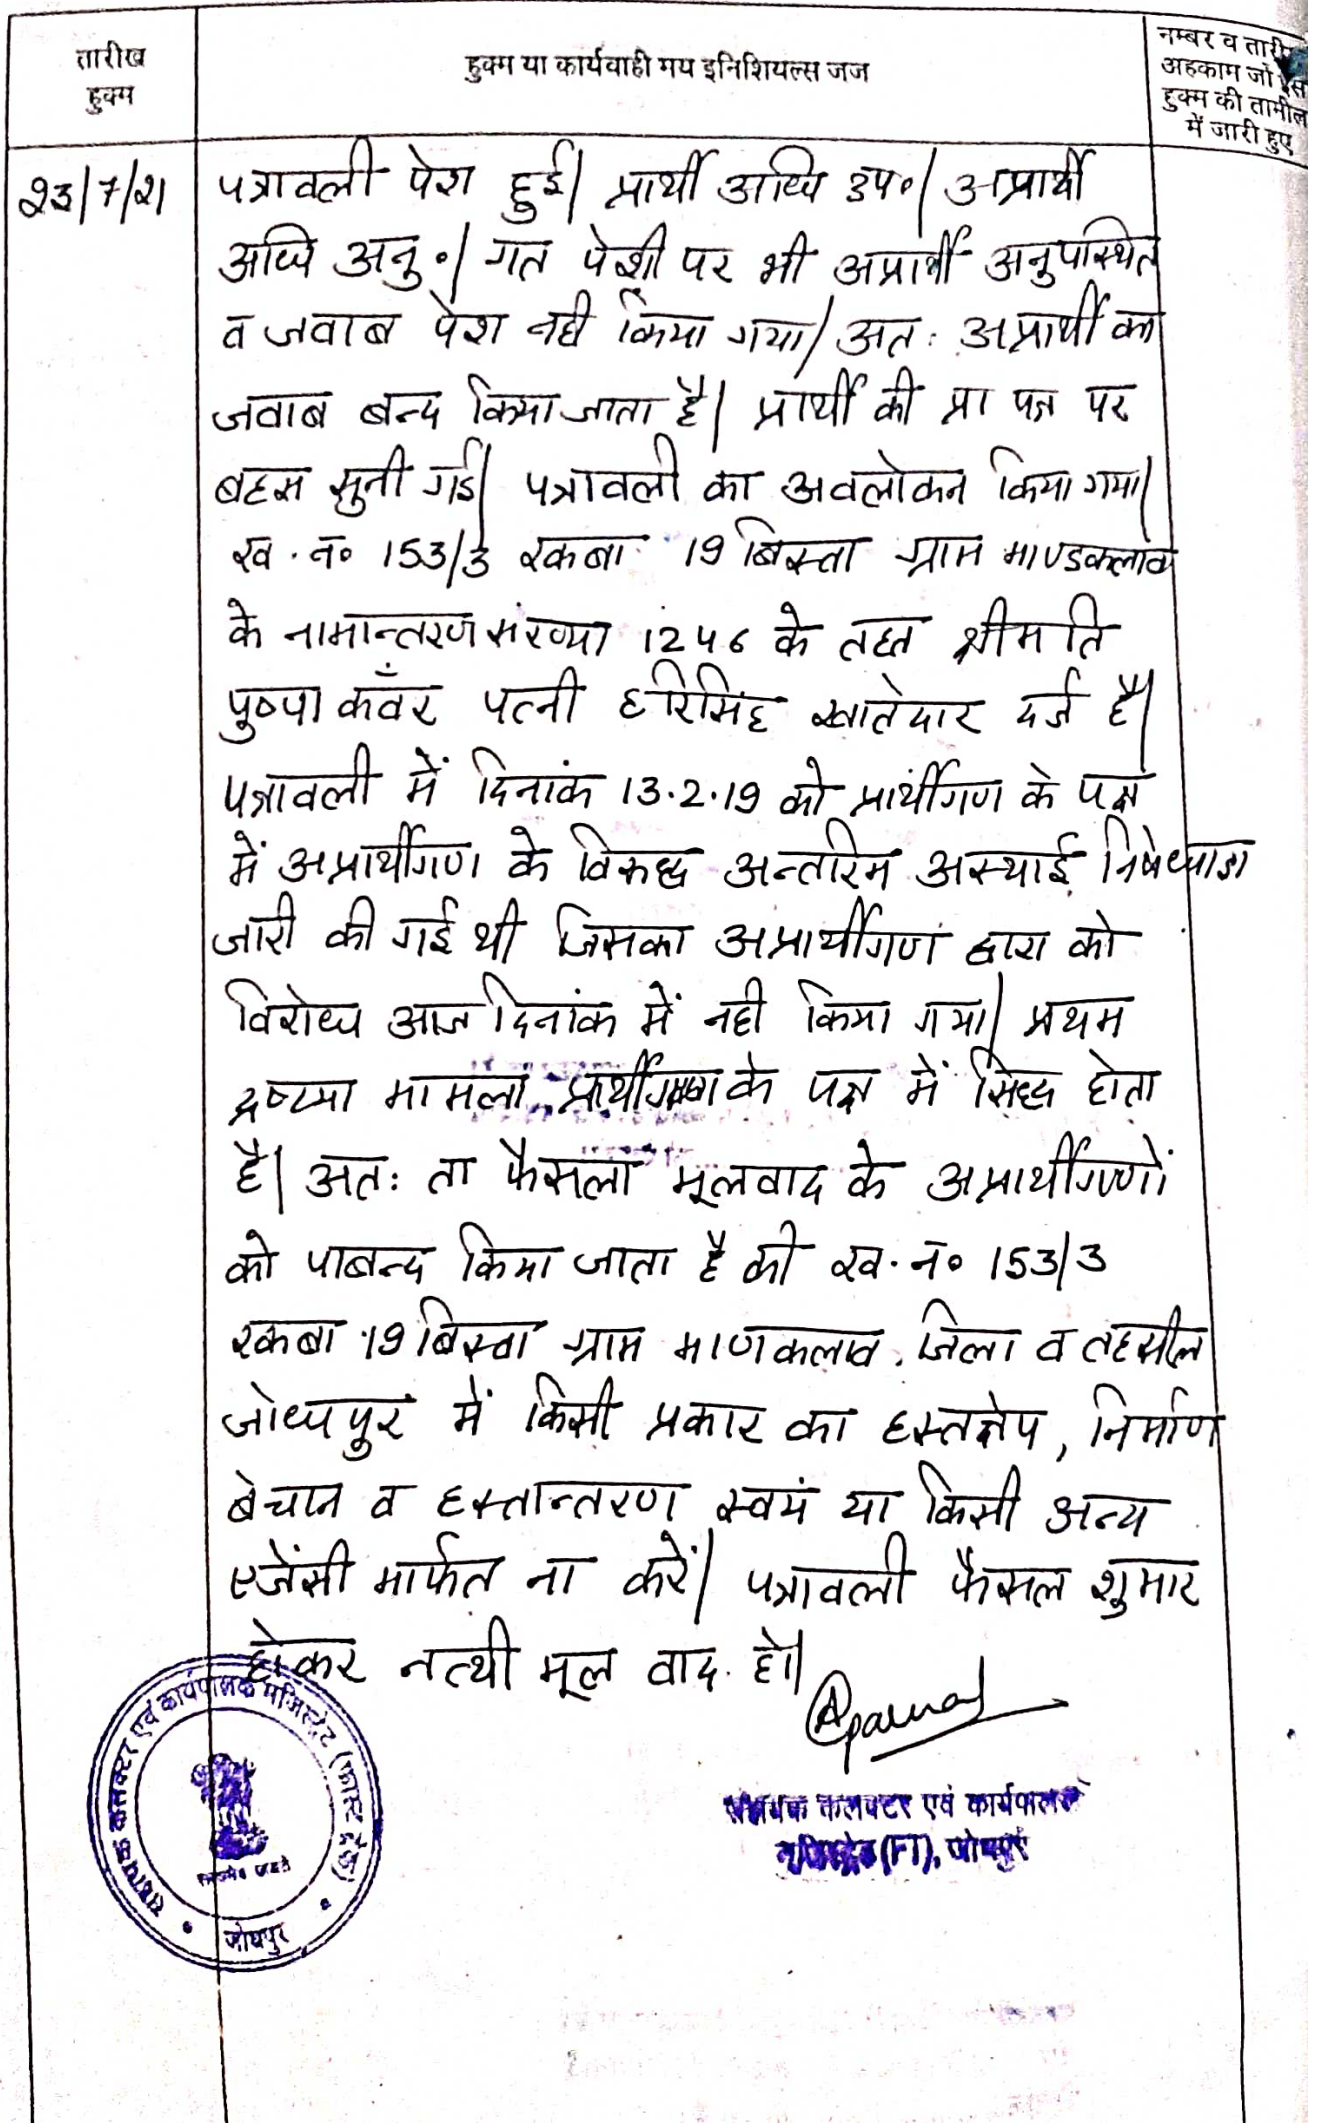 तारीख
हुक्म
हुक्म या कार्यवाही मय इनिशियल्स जज
नम्बर व तारीख
अहकाम जो इस
हुक्म की तामील
में जारी हुए
23/7/21
पत्रावली पेश हुई। प्रार्थी अधि उप०। अप्रार्थी
अधि अनु०। गत पेशी पर भी अप्रार्थी अनुपस्थित
व जवाब पेश नही किया गया। अतः अप्रार्थी का
जवाब बन्द किया जाता है। प्रार्थी की प्रा पत्र पर
बहस सुनी गई। पत्रावली का अवलोकन किया गया।
ख. न० 153/3 रकबा 19 बिस्वा ग्राम माण्डकलाव
के नामान्तरण संख्या 1246 के तहत श्रीमति
पुष्पा कँवर पत्नी हरिसिंह खातेदार दर्ज है।
पत्रावली में दिनांक 13.2.19 को प्रार्थीगण के पक्ष
में अप्रार्थीगण के विरूद्ध अन्तरिम अस्थाई निषेधाज्ञा
जारी की गई थी जिसका अप्रार्थीगण द्वारा को
विरोध आज दिनांक में नही किया गया। प्रथम
द्रष्टया मामला प्रार्थीगण के पक्ष में सिद्ध होता
है। अतः ता फैसला मूलवाद के अप्रार्थीगणों
को पाबन्द किया जाता है की ख. न० 153/3
रकबा 19 बिस्वा ग्राम माणकलाव, जिला व तहसील
जोधपुर में किसी प्रकार का हस्तक्षेप, निर्माण
बेचान व हस्तान्तरण स्वयं या किसी अन्य
एजेंसी मार्फत ना करें। पत्रावली फैसल शुमार
होकर नत्थी मूल वाद हो।
सहायक कलक्टर एवं कार्यपालक
मजिस्ट्रेट (FT), जोधपुर
सहायक कलक्टर एवं कार्यपालक मजिस्ट्रेट (फास्ट ट्रेक)
सत्यमेव जयते
जोधपुर